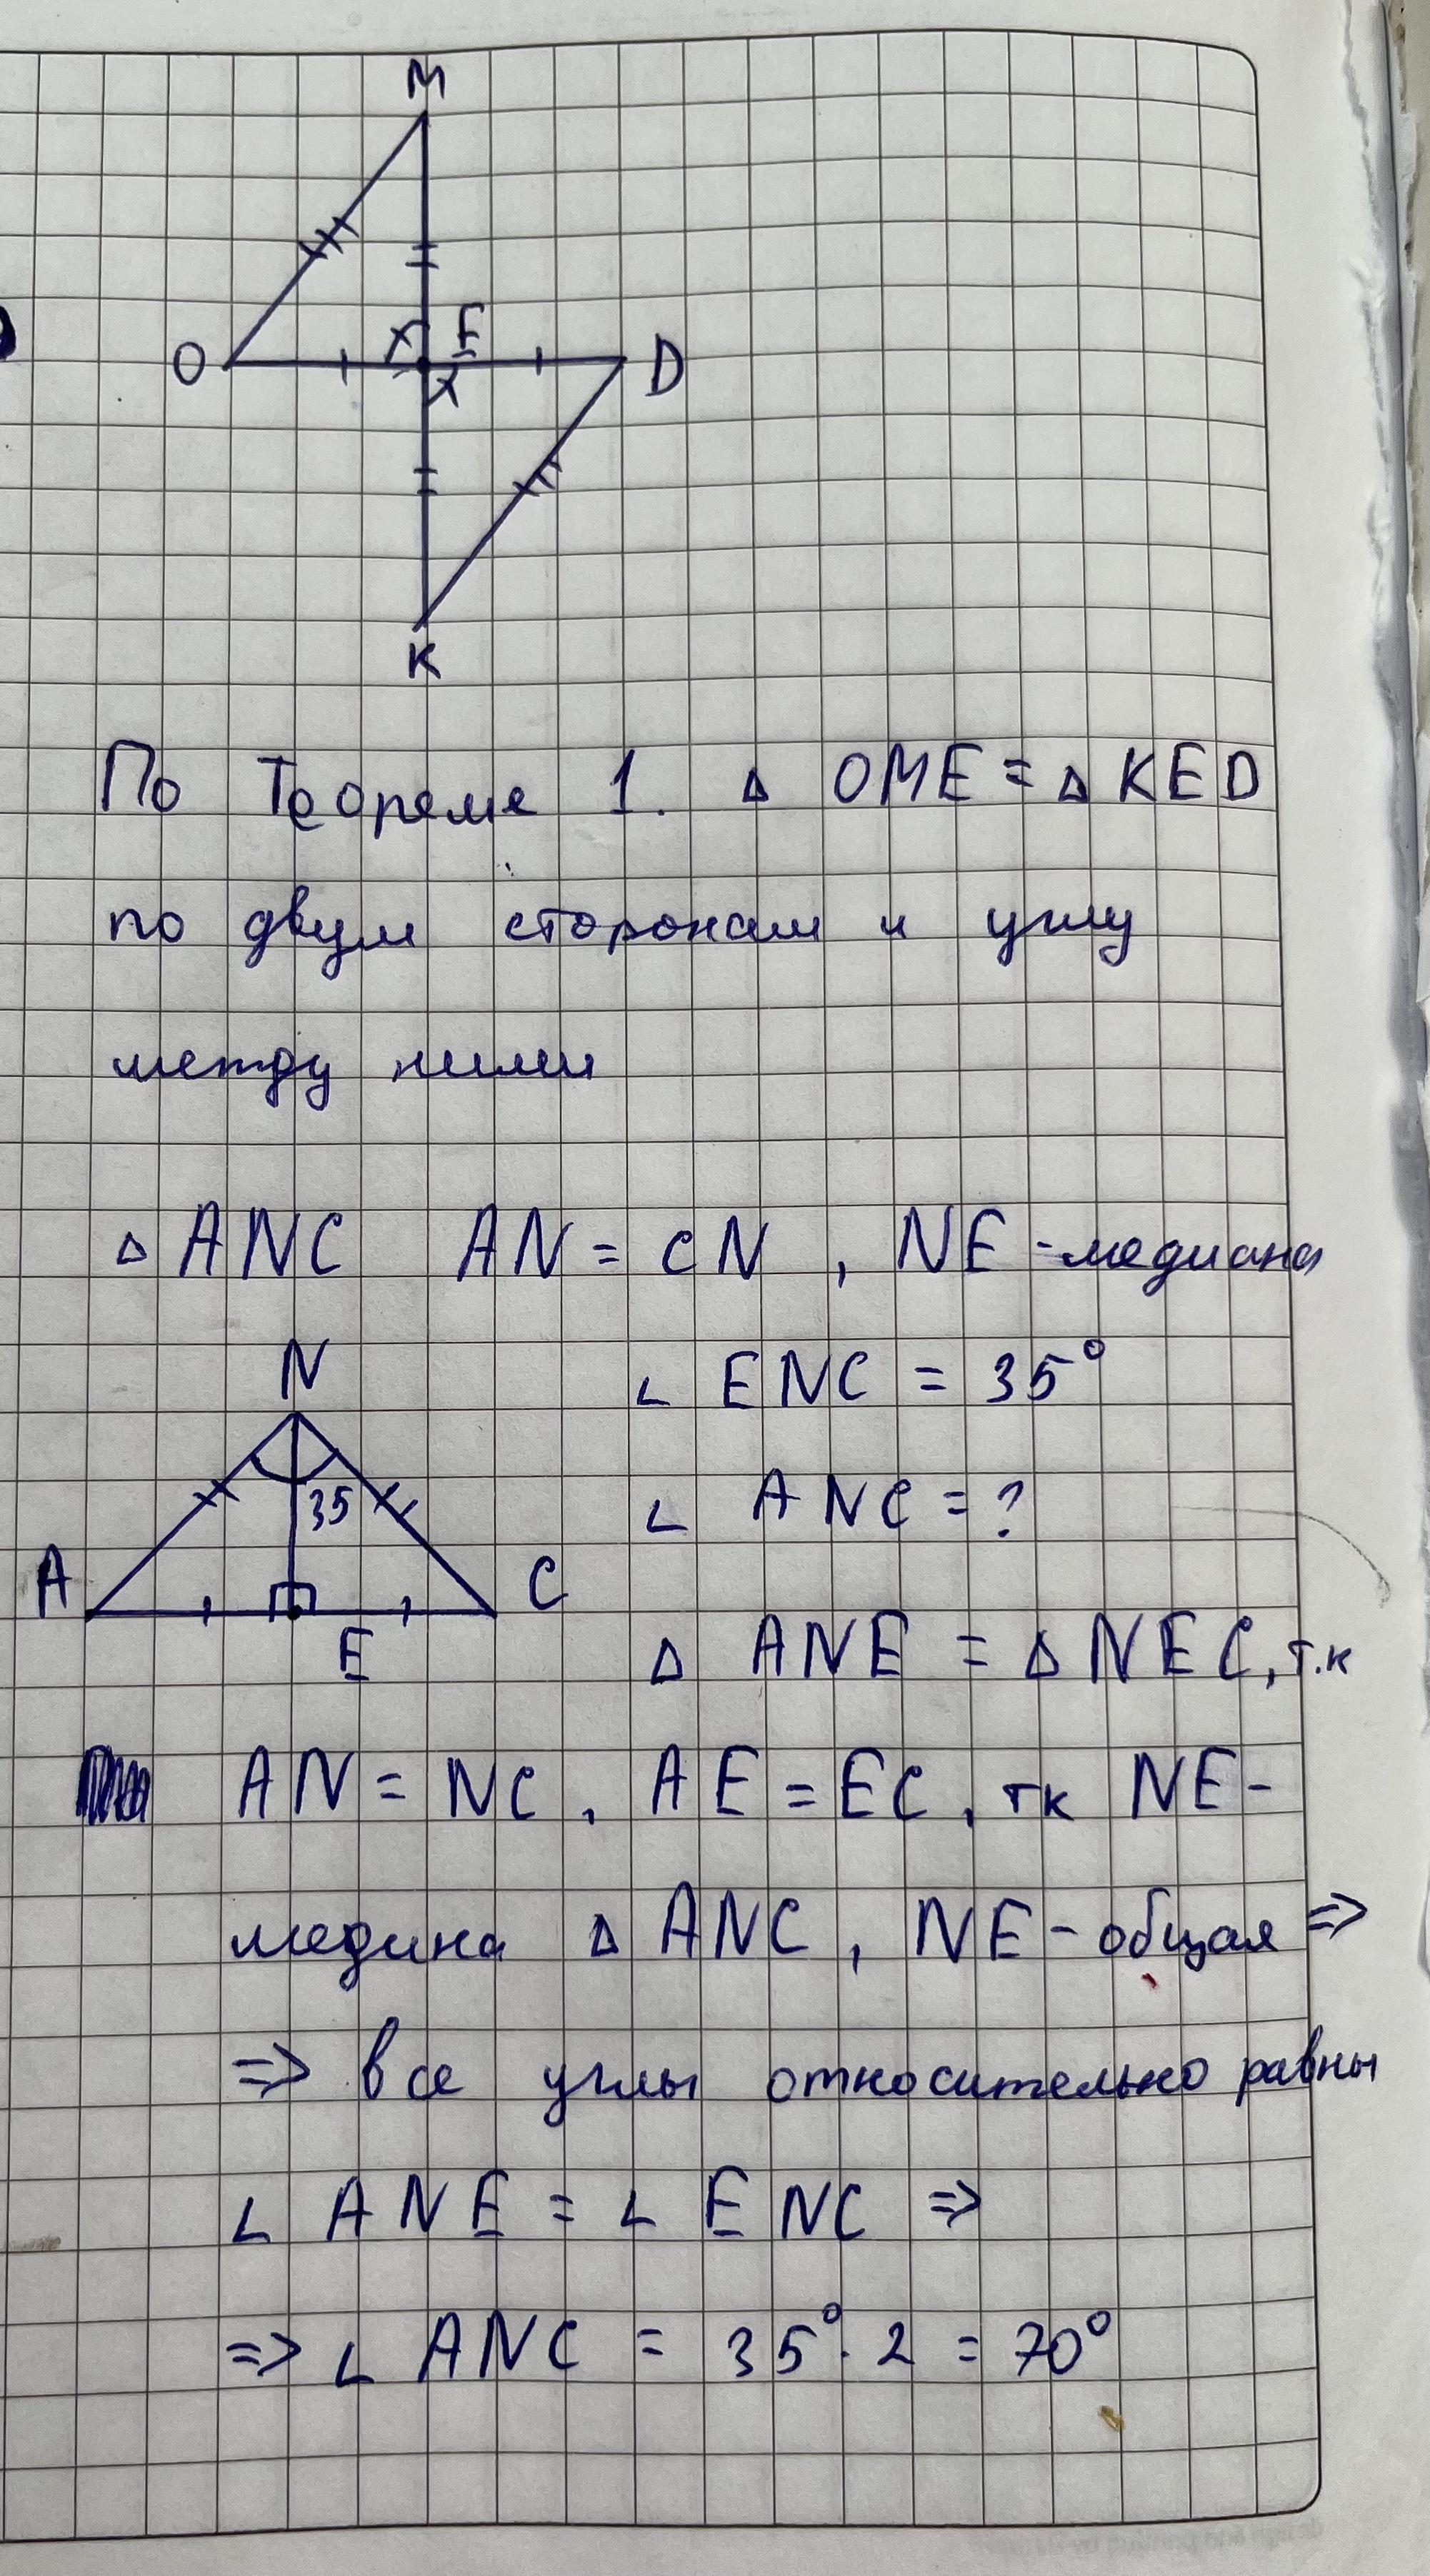 M
O
E
D
K
По Теореме 1. Δ OME = Δ KED
по двум сторонам и углу
между ними
Δ ANC AN = CN , NE - медиана
N
∠ ENC = 35°
35
∠ ANC = ?
A
C
E
Δ ANE = Δ NEC, т.к
AN = NC , AE = EC , тк NE -
медина Δ ANC , NE - общая =>
=> все углы относительно равны
∠ ANE = ∠ ENC =>
=> ∠ ANC = 35° · 2 = 70°